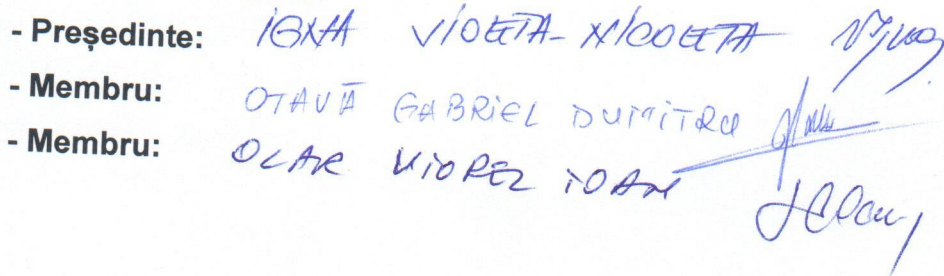 - Președinte: IGNA VIOLETA-NICOLETA
- Membru: OTAVĂ GABRIEL DUMITRU
- Membru: OLAR VIOREL IOAN